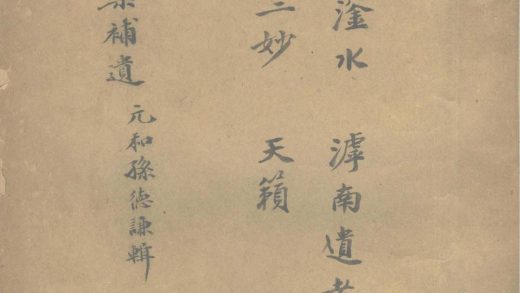 滏水 滹南遺老
二妙 天籟
集補遺 元和孫德謙輯